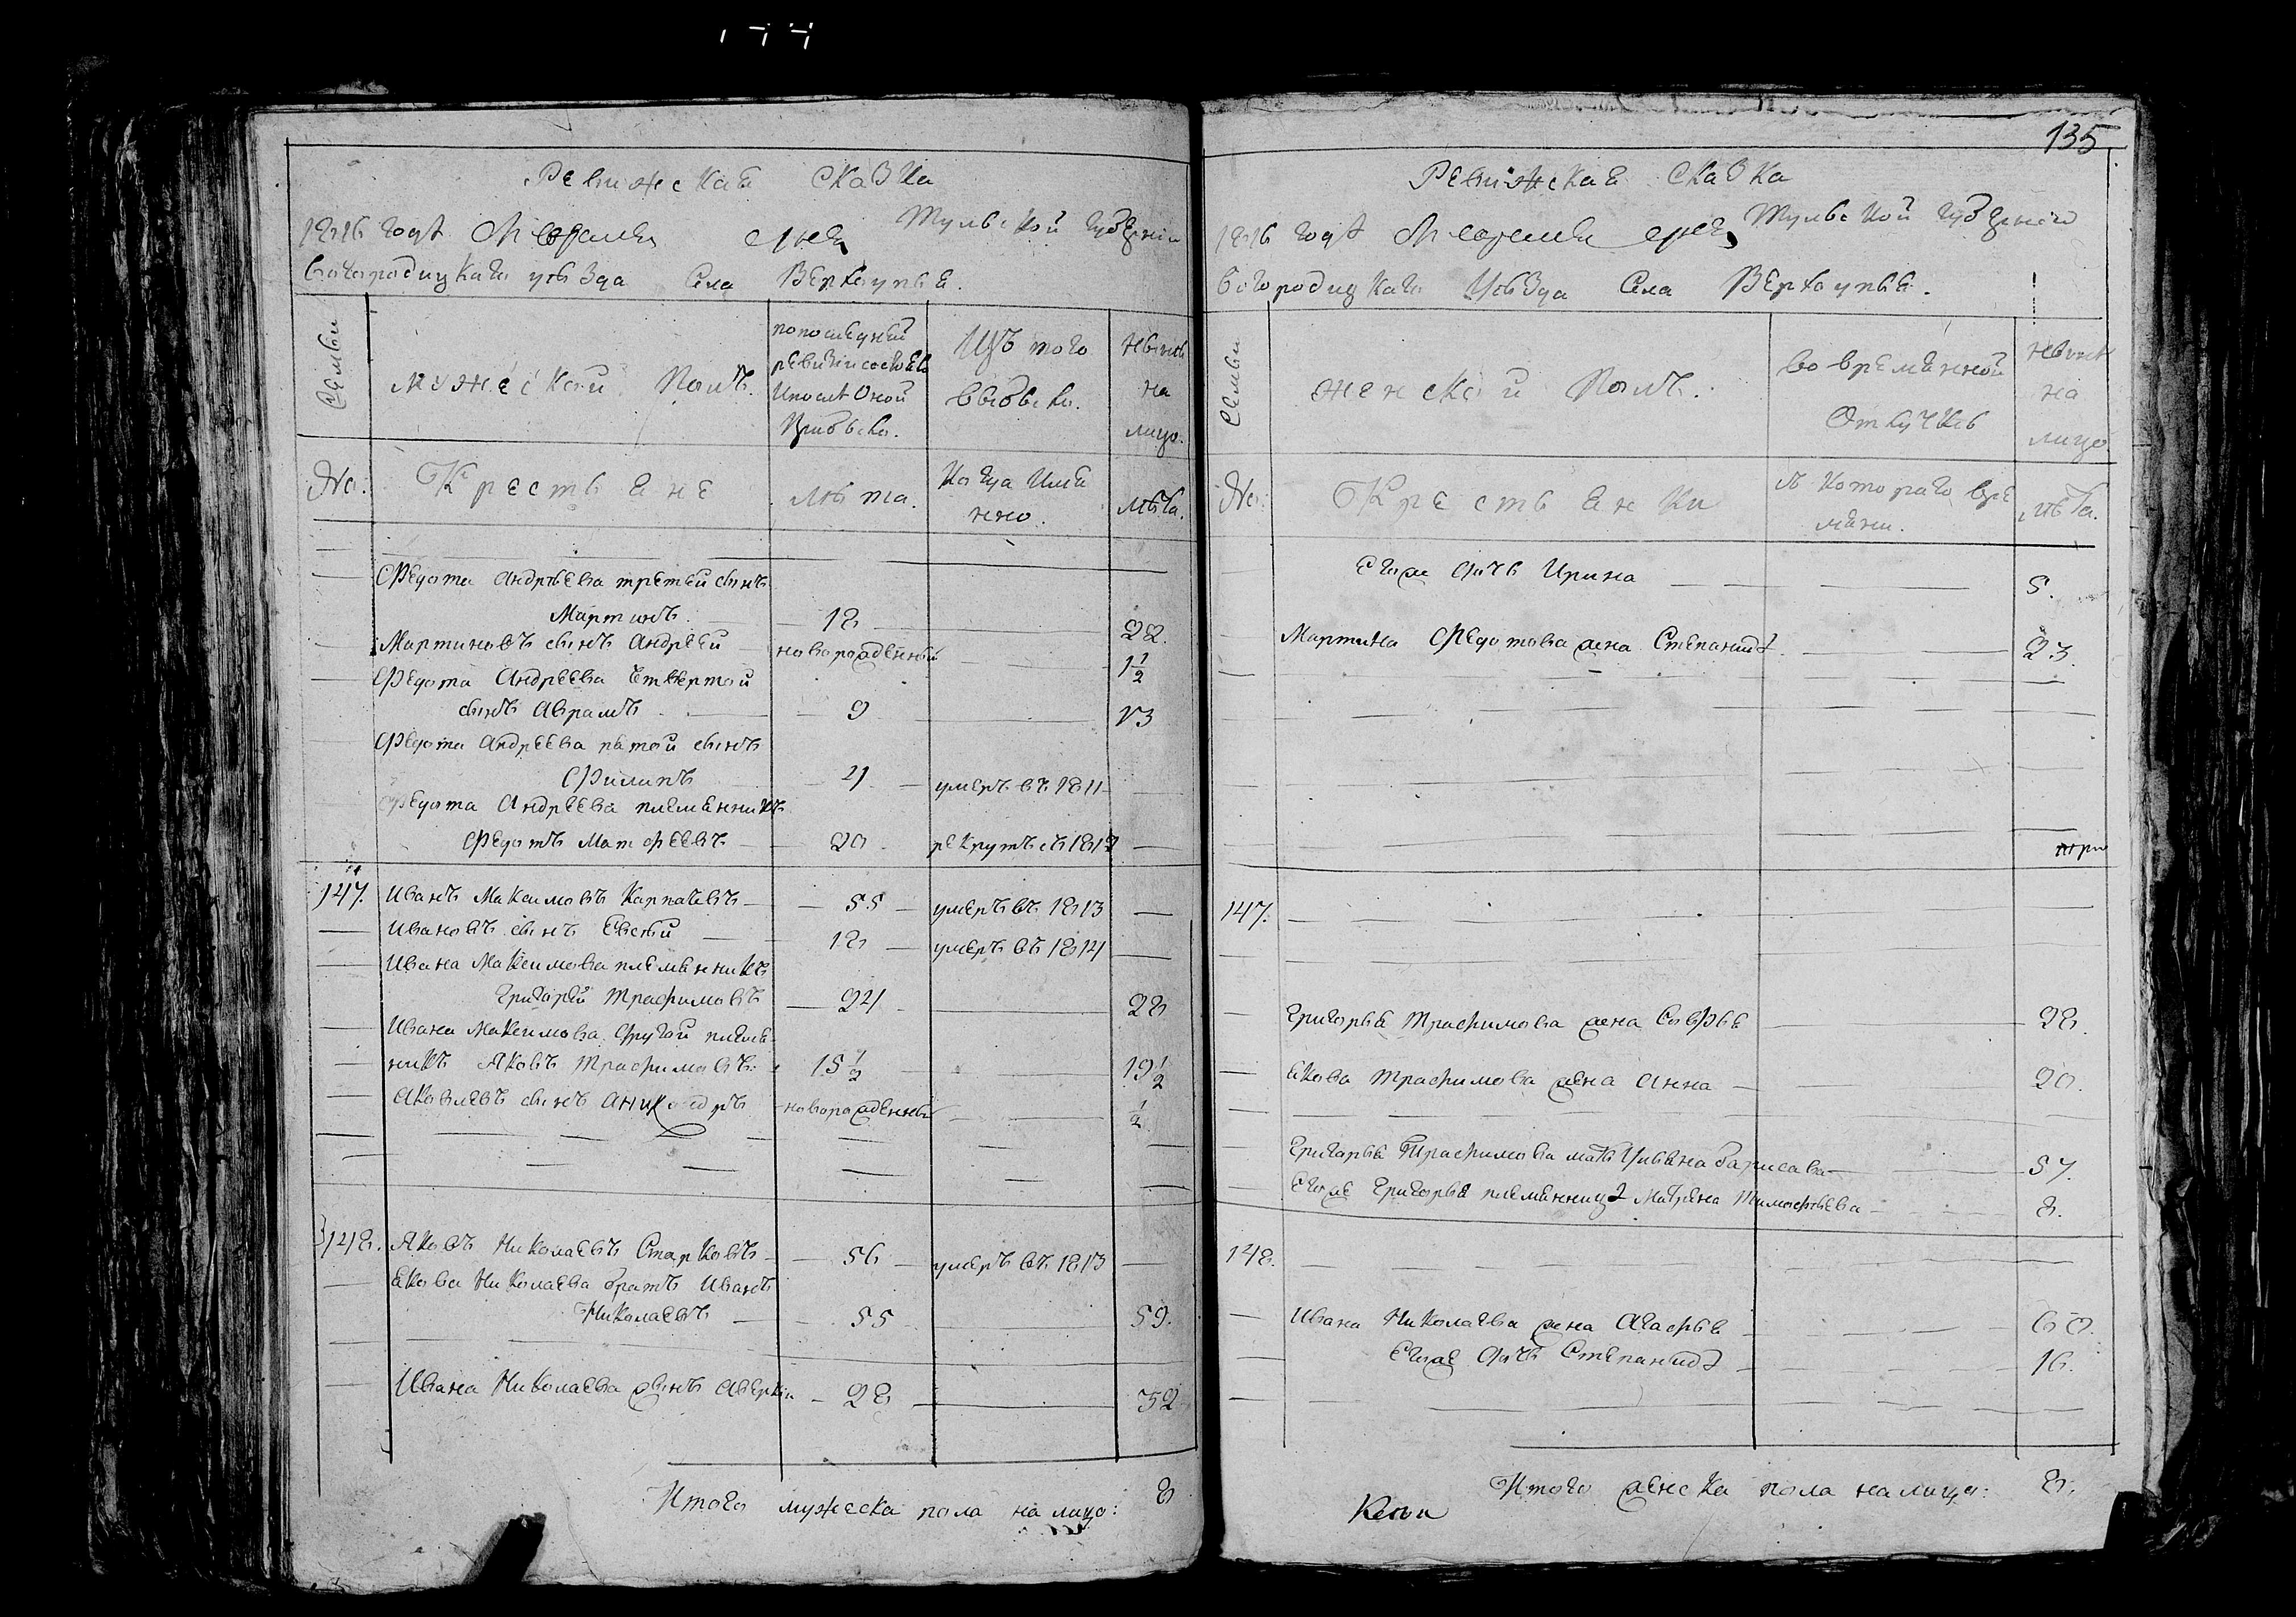 Ревижская сказка
1816 года Февраля дня Тульской губерніи
богородицкаго уѣзда Села Верхоупья.
Семьи
мужеской полъ.
по последней
ревизіи состояло
и после оной
прибыло.
Изъ того
выбыло.
нынѣ
на
лицо.
№.
Крестьяне
лѣта.
Когда имя
нно.
лѣта.
Федота андрѣева третей сынъ
Мартинъ. 18 22.
Мартиновъ сынъ андреей новорожденный 1 1/2
Федота Андреева четвертой
сынъ аврамъ 9 13
Федота андреева пятой сынъ
Филипъ 4 умеръ въ 1811
Федота Андреева племянникъ
Федотъ Матфеевъ 20 рекрутъ съ 1813
147. Иванъ Максимовъ Карпачевъ 55 умеръ въ 1813
Ивановъ сынъ Евсей 18 умеръ въ 1814
Ивана Максимова племянникъ
Григорей Трафимовъ 24 28
Ивана Максимова другой племя
никъ Яковъ Трафимовъ. 15 1/2 19 1/2
Яковлевъ сынъ аникандръ новорожденный 1/2
148. Яковъ Николаевъ Старковъ 56 умеръ въ 1813
Якова Николаева братъ Иванъ
Николаевъ 55 59.
Ивана Николаева сынъ аверкій 28 32
Итого мужеска пола на лицо: 8
135
Ревижская сказка
1816 года Февраля дня Тульской губерніи
богородицкаго Уѣзда Села Верхоупья.
Семьи
женской полъ.
во временной
Отлучкѣ
нынѣ
на
лицо
№.
Крестьянки
съ котораго вре
мяни.
лѣта.
Егож дочь Ирина 5.
Мартина Федотова жена Степанида 23.
147.
Григорья Трафимова жена Софья 28.
Якова Трафимова жена анна 20.
Григорья Трафимова мать Ульяна барисава 57.
Егоже Григорья племянница Матрена Тимофѣева 8.
148.
Ивана Николаева жена Агафья 60.
Егоже дочь Степанида 16.
Итого женска пола на лицо: 8.